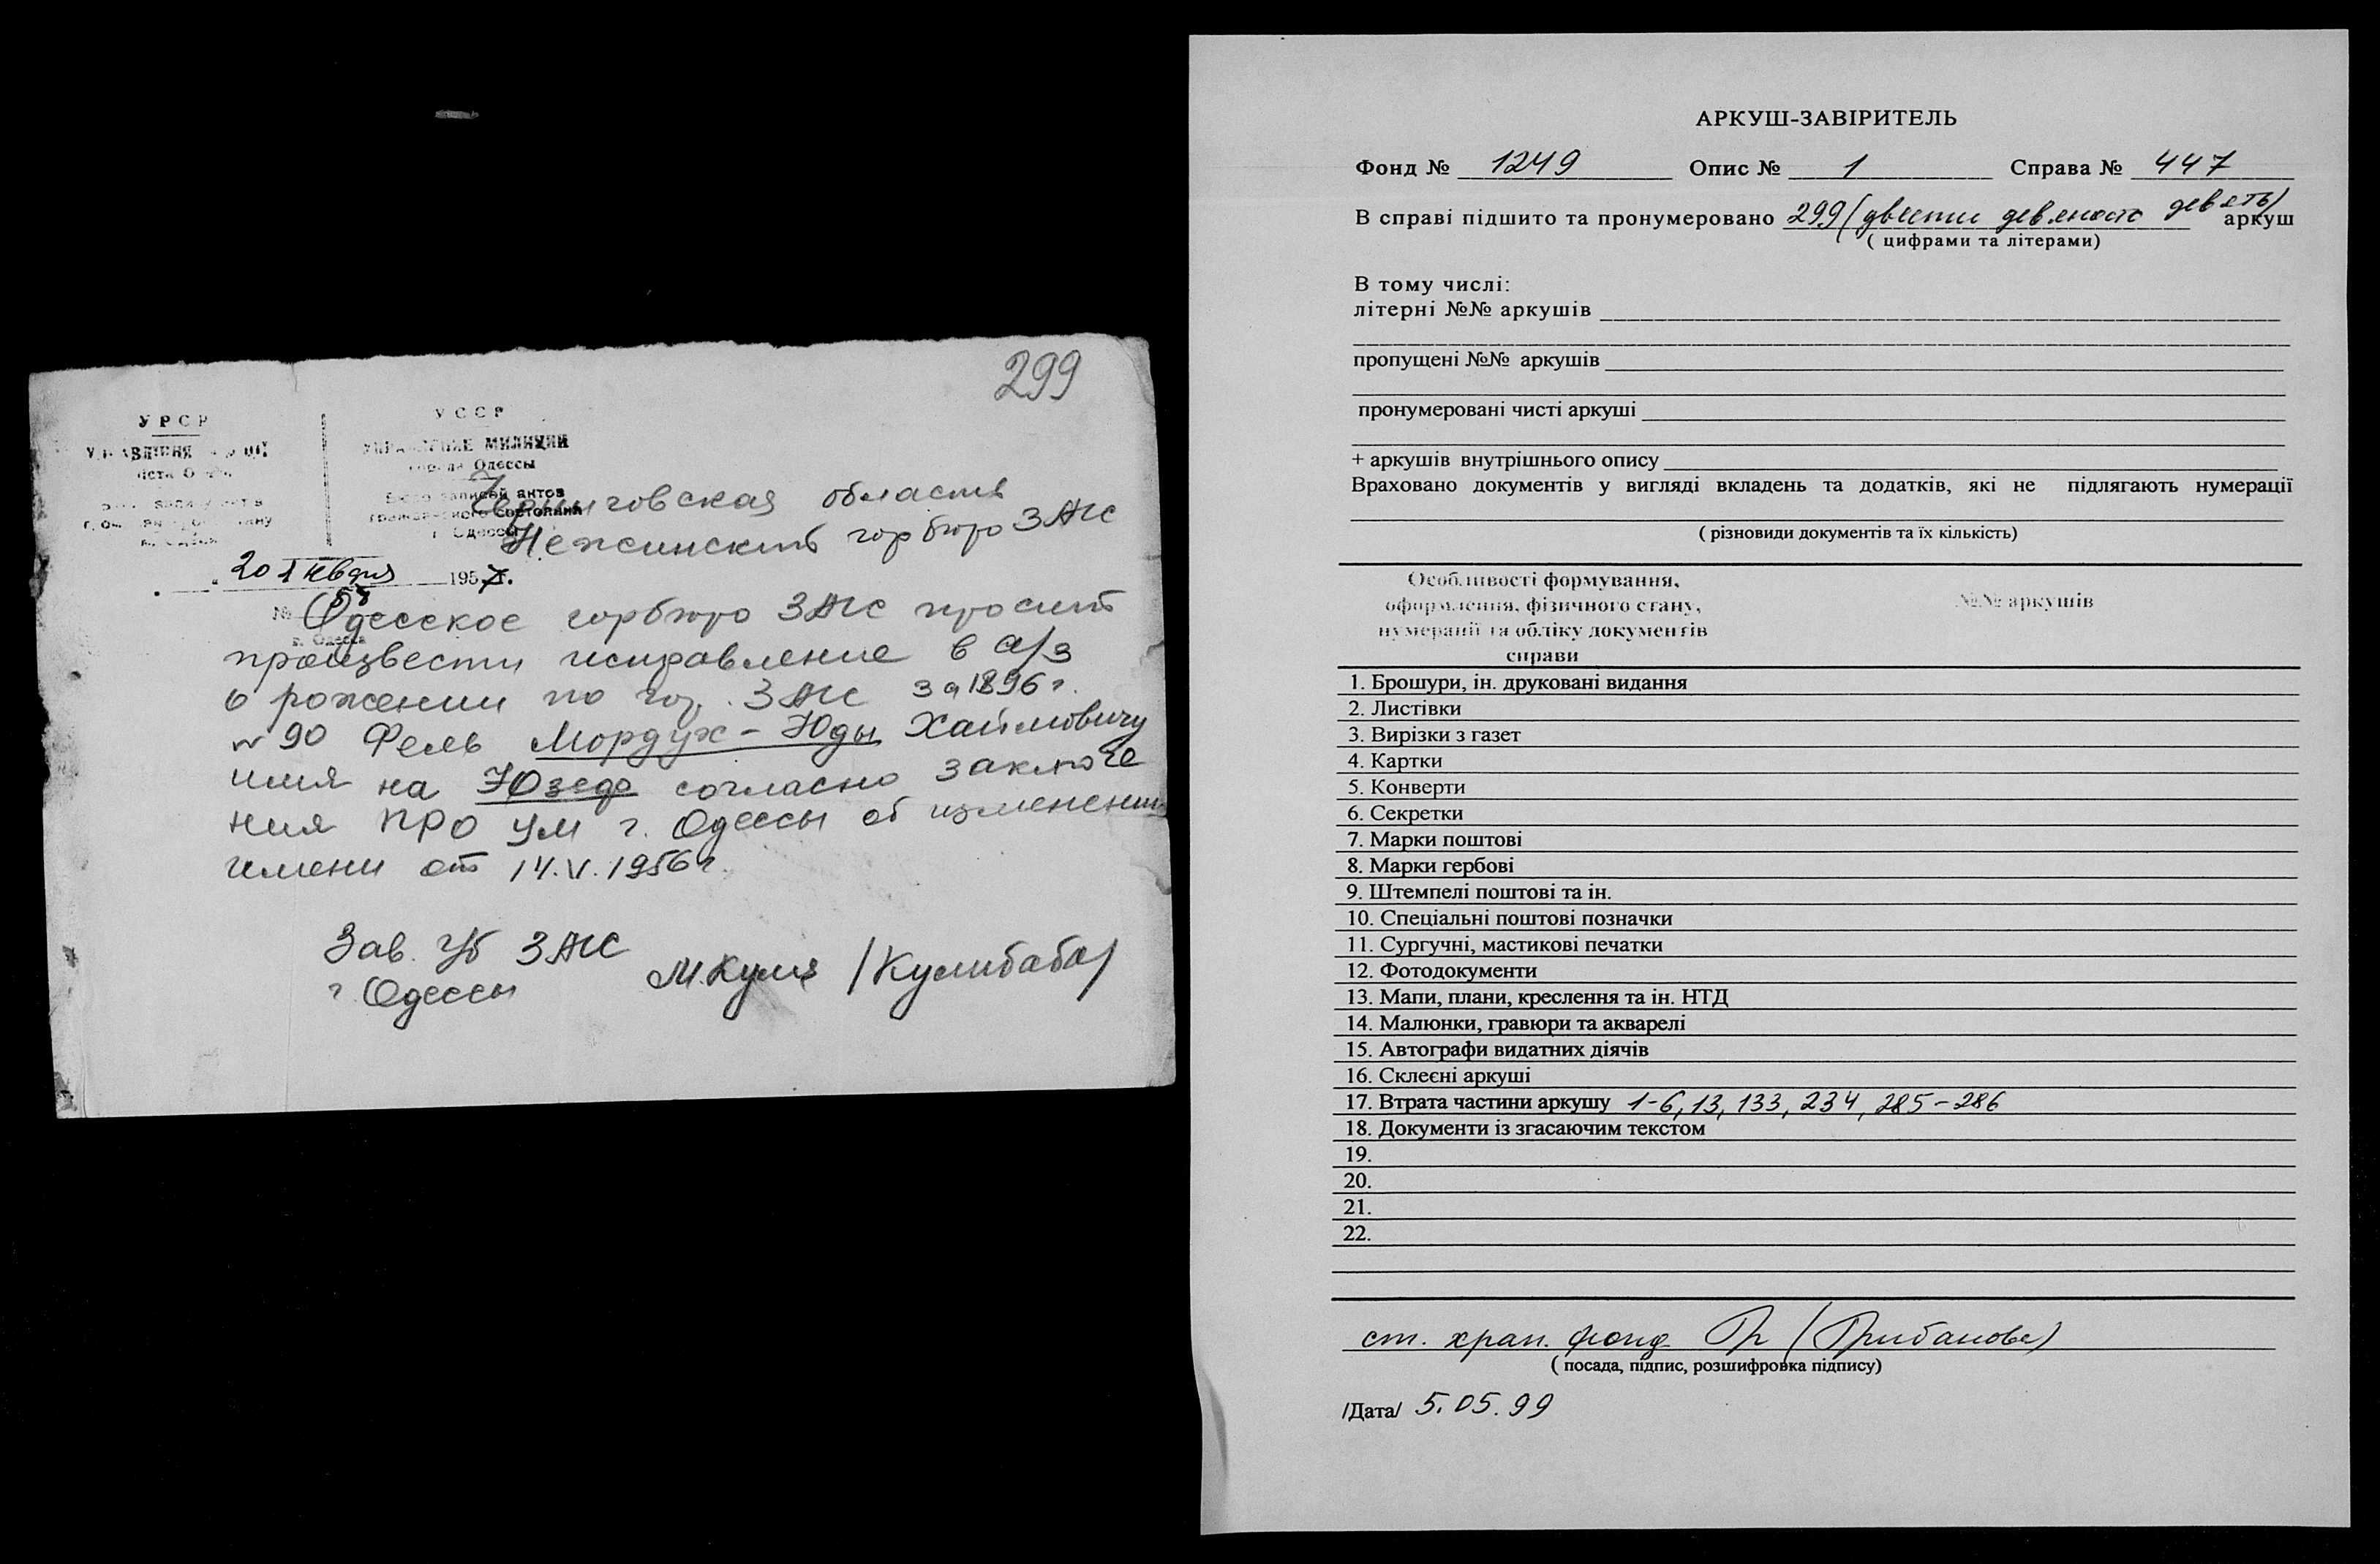 299
УРСР
УПРАВЛІННЯ
міста
УССР
УПРАВЛЕНИЕ МИЛИЦИИ
города Одессы
Бюро записей актов
гражданского состояния
г. Одессы
Черниговская область
Нежинский горбюро ЗАГС
20 января 1957 г.
№ 58
г. Одесса
Одесское горбюро ЗАГС просит
произвести исправление в а/з
о рожении по гор. ЗАГС за 1896 г.
№ 90 Фель Мордух-Юды Хаимовичу
имя на Юзеф согласно заключе
ния ПРО УМ г. Одессы об изменении
имени от 14.V.1956 г.
Зав. ЗАГС
г. Одессы М.Кули /Кулибаба/
АРКУШ-ЗАВІРИТЕЛЬ
Фонд № 1249 Опис № 1 Справа № 447
В справі підшито та пронумеровано 299 (двести девяносто девять) аркуш
( цифрами та літерами)
В тому числі:
літерні №№ аркушів
пропущені №№ аркушів
пронумеровані чисті аркуші
+ аркушів внутрішнього опису
Враховано документів у вигляді вкладень та додатків, які не підлягають нумерації
( різновиди документів та їх кількість)
Особливості формування,
оформлення, фізичного стану,
нумерації та обліку документів
справи
№№ аркушів
1. Брошури, ін. друковані видання
2. Листівки
3. Вирізки з газет
4. Картки
5. Конверти
6. Секретки
7. Марки поштові
8. Марки гербові
9. Штемпелі поштові та ін.
10. Спеціальні поштові позначки
11. Сургучні, мастикові печатки
12. Фотодокументи
13. Мапи, плани, креслення та ін. НТД
14. Малюнки, гравюри та акварелі
15. Автографи видатних діячів
16. Склеєні аркуші
17. Втрата частини аркушу 1-6, 13, 133, 234, 285-286
18. Документи із згасаючим текстом
19.
20.
21.
22.
ст. хран. фонд (Грибанова)
( посада, підпис, розшифровка підпису)
/Дата/ 5.05.99